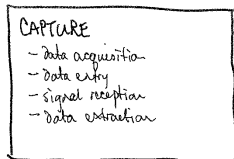 CAPTURE
- data acquisition
- data entry
- signal reception
- data extraction